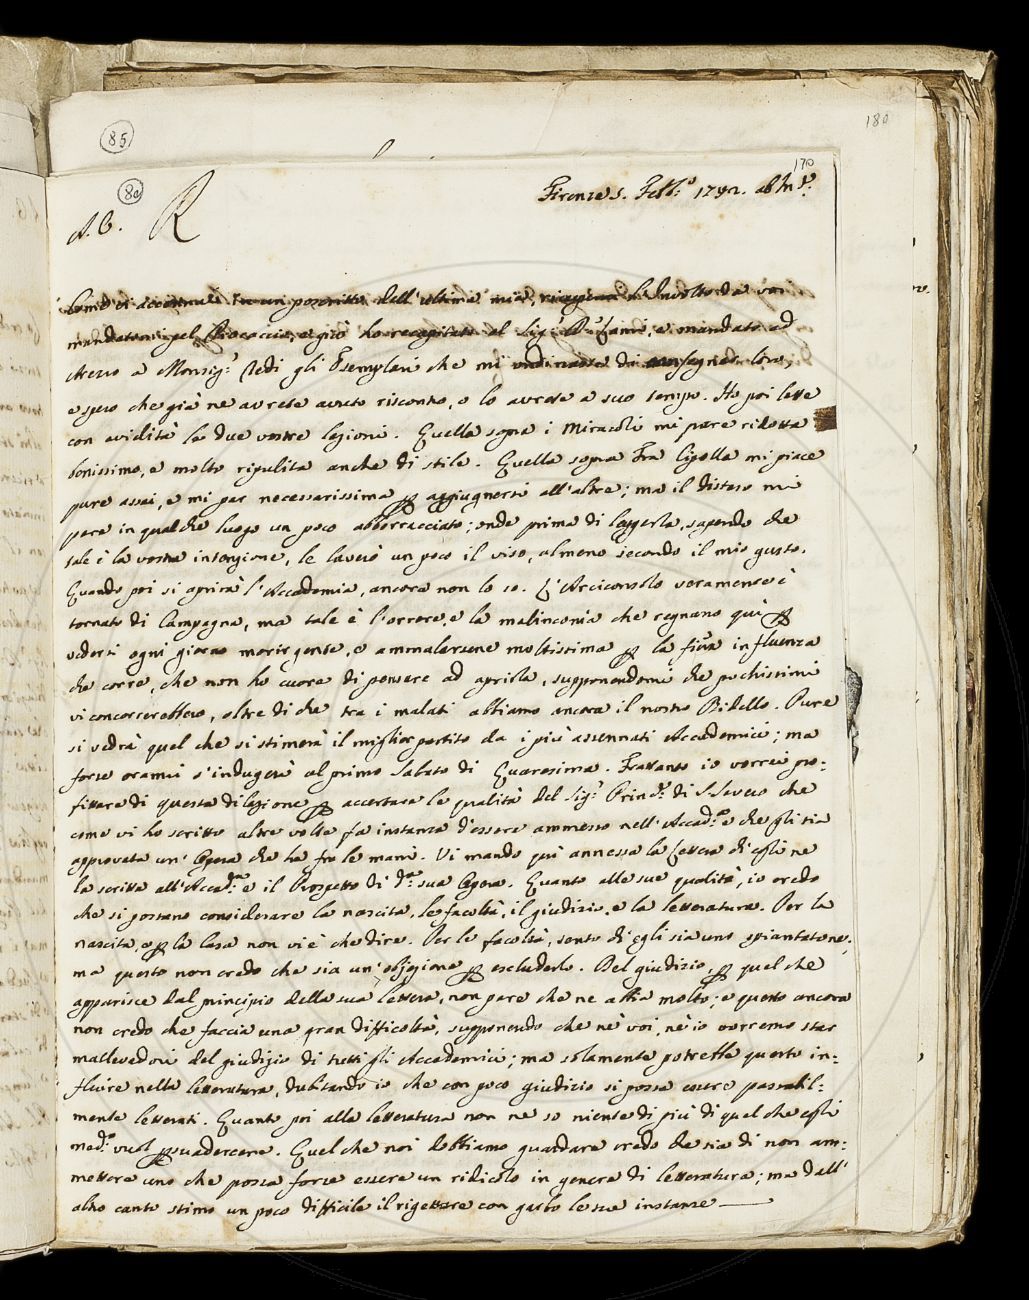 85
180
170
80
A. C. R
Firenze 5. Febb.º 1742. ab In.e
Come vi accennai in un poscritto dell'ultima mia, ricevei l'Involto da voi
mandatomi pel Procaccia, e già ho recapitato al Sig.r D.r Lami, e mandato ad
Arezzo a Monsig.r Redi gli Esemplari che mi ordinaste di consegnar loro,
e spero che già ne avrete avuto riscontro, o lo avrete a suo tempo. Ho poi lette
con avidità le due vostre lezioni. Quella sopra i Miracoli mi pare ridotta
bonissimo, e molto ripulita anche di stile. Quella sopra Fra Cipolla mi piace
pure assai, e mi par necessarissima p aggiugnersi all'altre; ma il disteso mi
pare in qualche luogo un poco abborracciato; onde prima di leggerla, sapendo che
tale è la vostra intenzione, le laverò un poco il viso, almeno secondo il mio gusto.
Quando poi si aprirà l'Accademia, ancora non lo so. L'Arciconsolo veramente è
tornato di Campagna, ma tale è l'orrore, e la malinconia che regnano quì p
vedersi ogni giorno morir gente, e ammalarsene moltissima p la fiera influenza
che corre, che non ho cuore di pensare ad aprirla, supponendomi che pochissimi
vi concorrerebbero, oltre di che tra i malati abbiamo ancora il nostro Bidello. Pure
si vedrà quel che si stimerà il miglior partito da i più assennati Accademici; ma
forse oramai s'indugerà al primo Sabato di Quaresima. Frattanto io vorrei pro:
fittare di questa dilazione p accertare le qualità del Sig.r Prin.e di S. Severo che
come vi ho scritto altre volte fa instanza d'essere ammesso nell'Accad.a e che gli sia
approvata un' Opera che ha fra le mani. Vi mando quì annessa la Lettera ch'egli ne
ha scritta all'Accad.a e il Prospetto di d.a sua Opera. Quanto alle sue qualità, io credo
che si possano considerare la nascita, le facoltà, il giudizio, e la letteratura. Per la
nascita, e p la Casa non vi è che dire. Per le facoltà, sento ch'egli sia uno spiantatone;
ma questo non credo che sia un'objezione p escluderlo. Del giudizio, p quel che
apparisce dal principio della sua lettera, non pare che ne abbia molto; e questo ancora
non credo che faccia una gran difficoltà, supponendo che nè voi, nè io vorremo star
mallevadori del giudizio di tutti gli Accademici; ma solamente potrebbe questo in:
fluire nella letteratura, dubitando io che con poco giudizio si possa essere passabil:
mente letterati. Quanto poi alla letteratura non ne so niente di più di quel che egli
med.o vuol psuadercene. Quel che noi dobbiamo guardare credo che sia di non am:
mettere uno che possa forse essere un ridicolo in genere di letteratura; ma dall'
altro canto stimo un poco difficile il rigettare con garbo le sue instanze